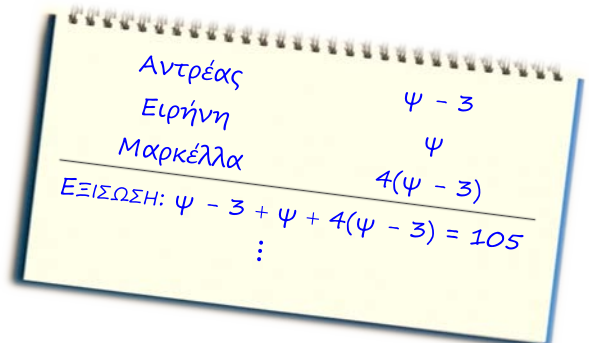 Αντρέας ψ - 3
Ειρήνη ψ
Μαρκέλλα 4(ψ - 3)
ΕΞΙΣΩΣΗ: ψ - 3 + ψ + 4(ψ - 3) = 105
⋮